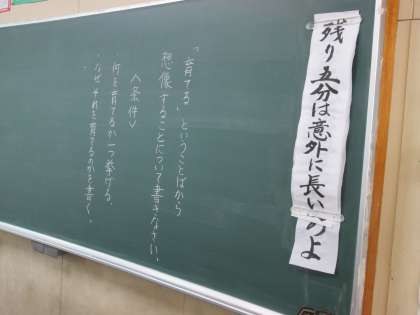 残り五分は意外に長いのよ
「育てる」ということばから
想像することについて書きなさい。
〈条件〉
・何を育てるか一つ挙げる。
・なぜそれを育てるのかを書く。